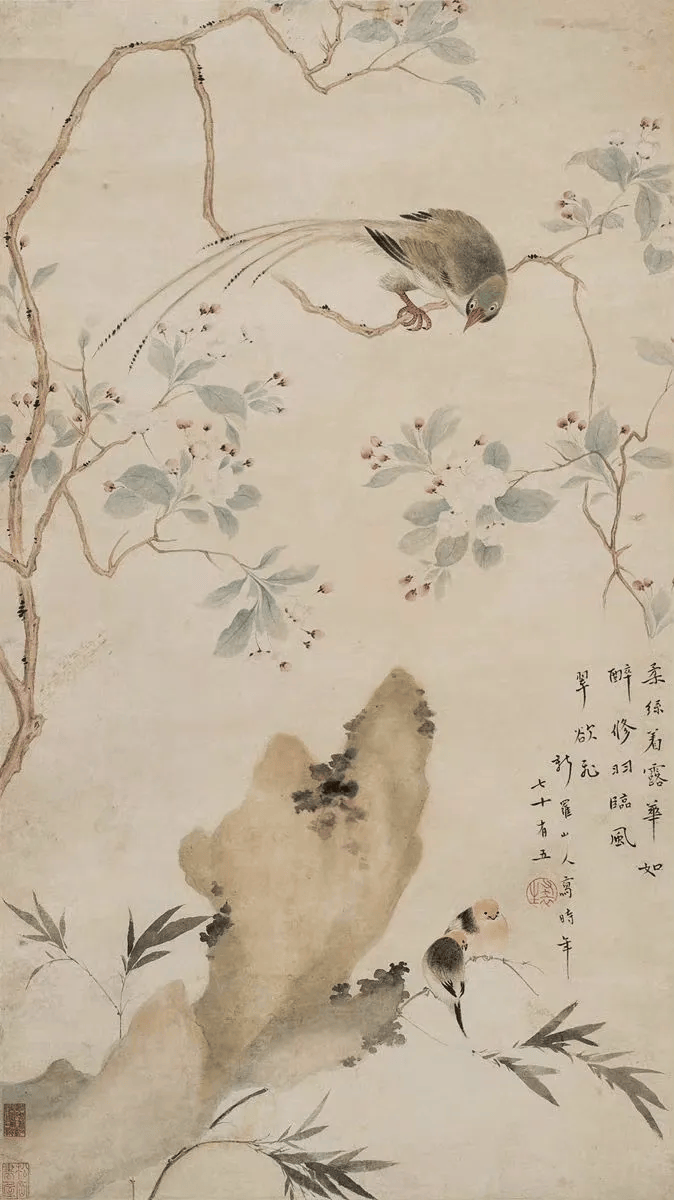 柔絲着露華如
醉修羽臨風
翠欲飛
新羅山人寫時年
七十有五